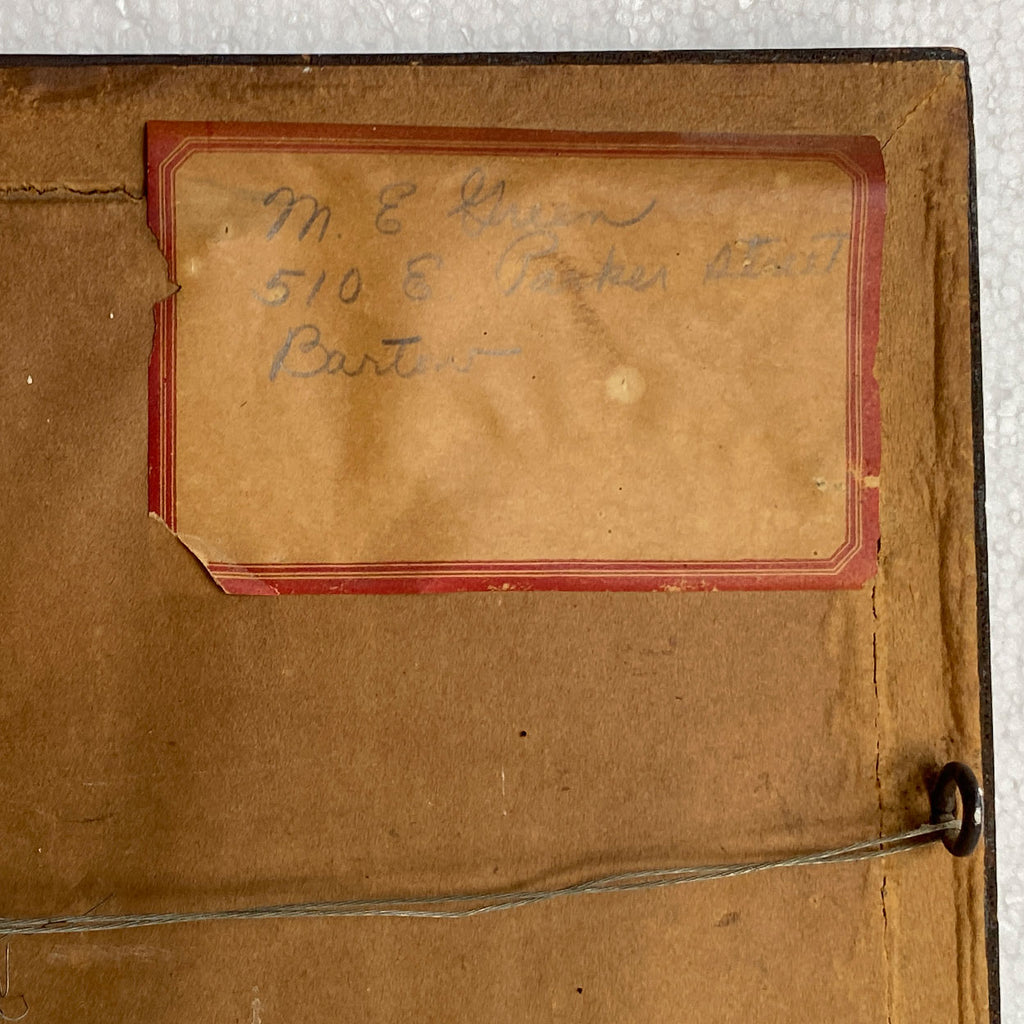 M. E Green
510 E Parker street
Bartow